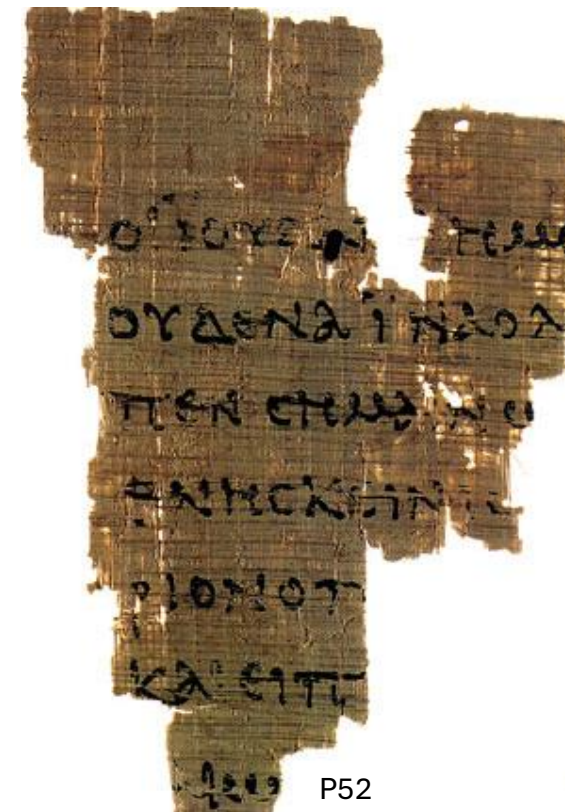 ΟΙ ΙΟΥΔΑΙ ΗΜ
ΟΥΔΕΝΑ ΙΝΑ Ο Λ
ΠΕΝ ϹΗΜΑΙΝΩ
ΘΝΗϹΚΕΙΝ ΙϹ
ΡΙΟΝ Ο Π
ΚΑΙ ΕΙΠ
P52